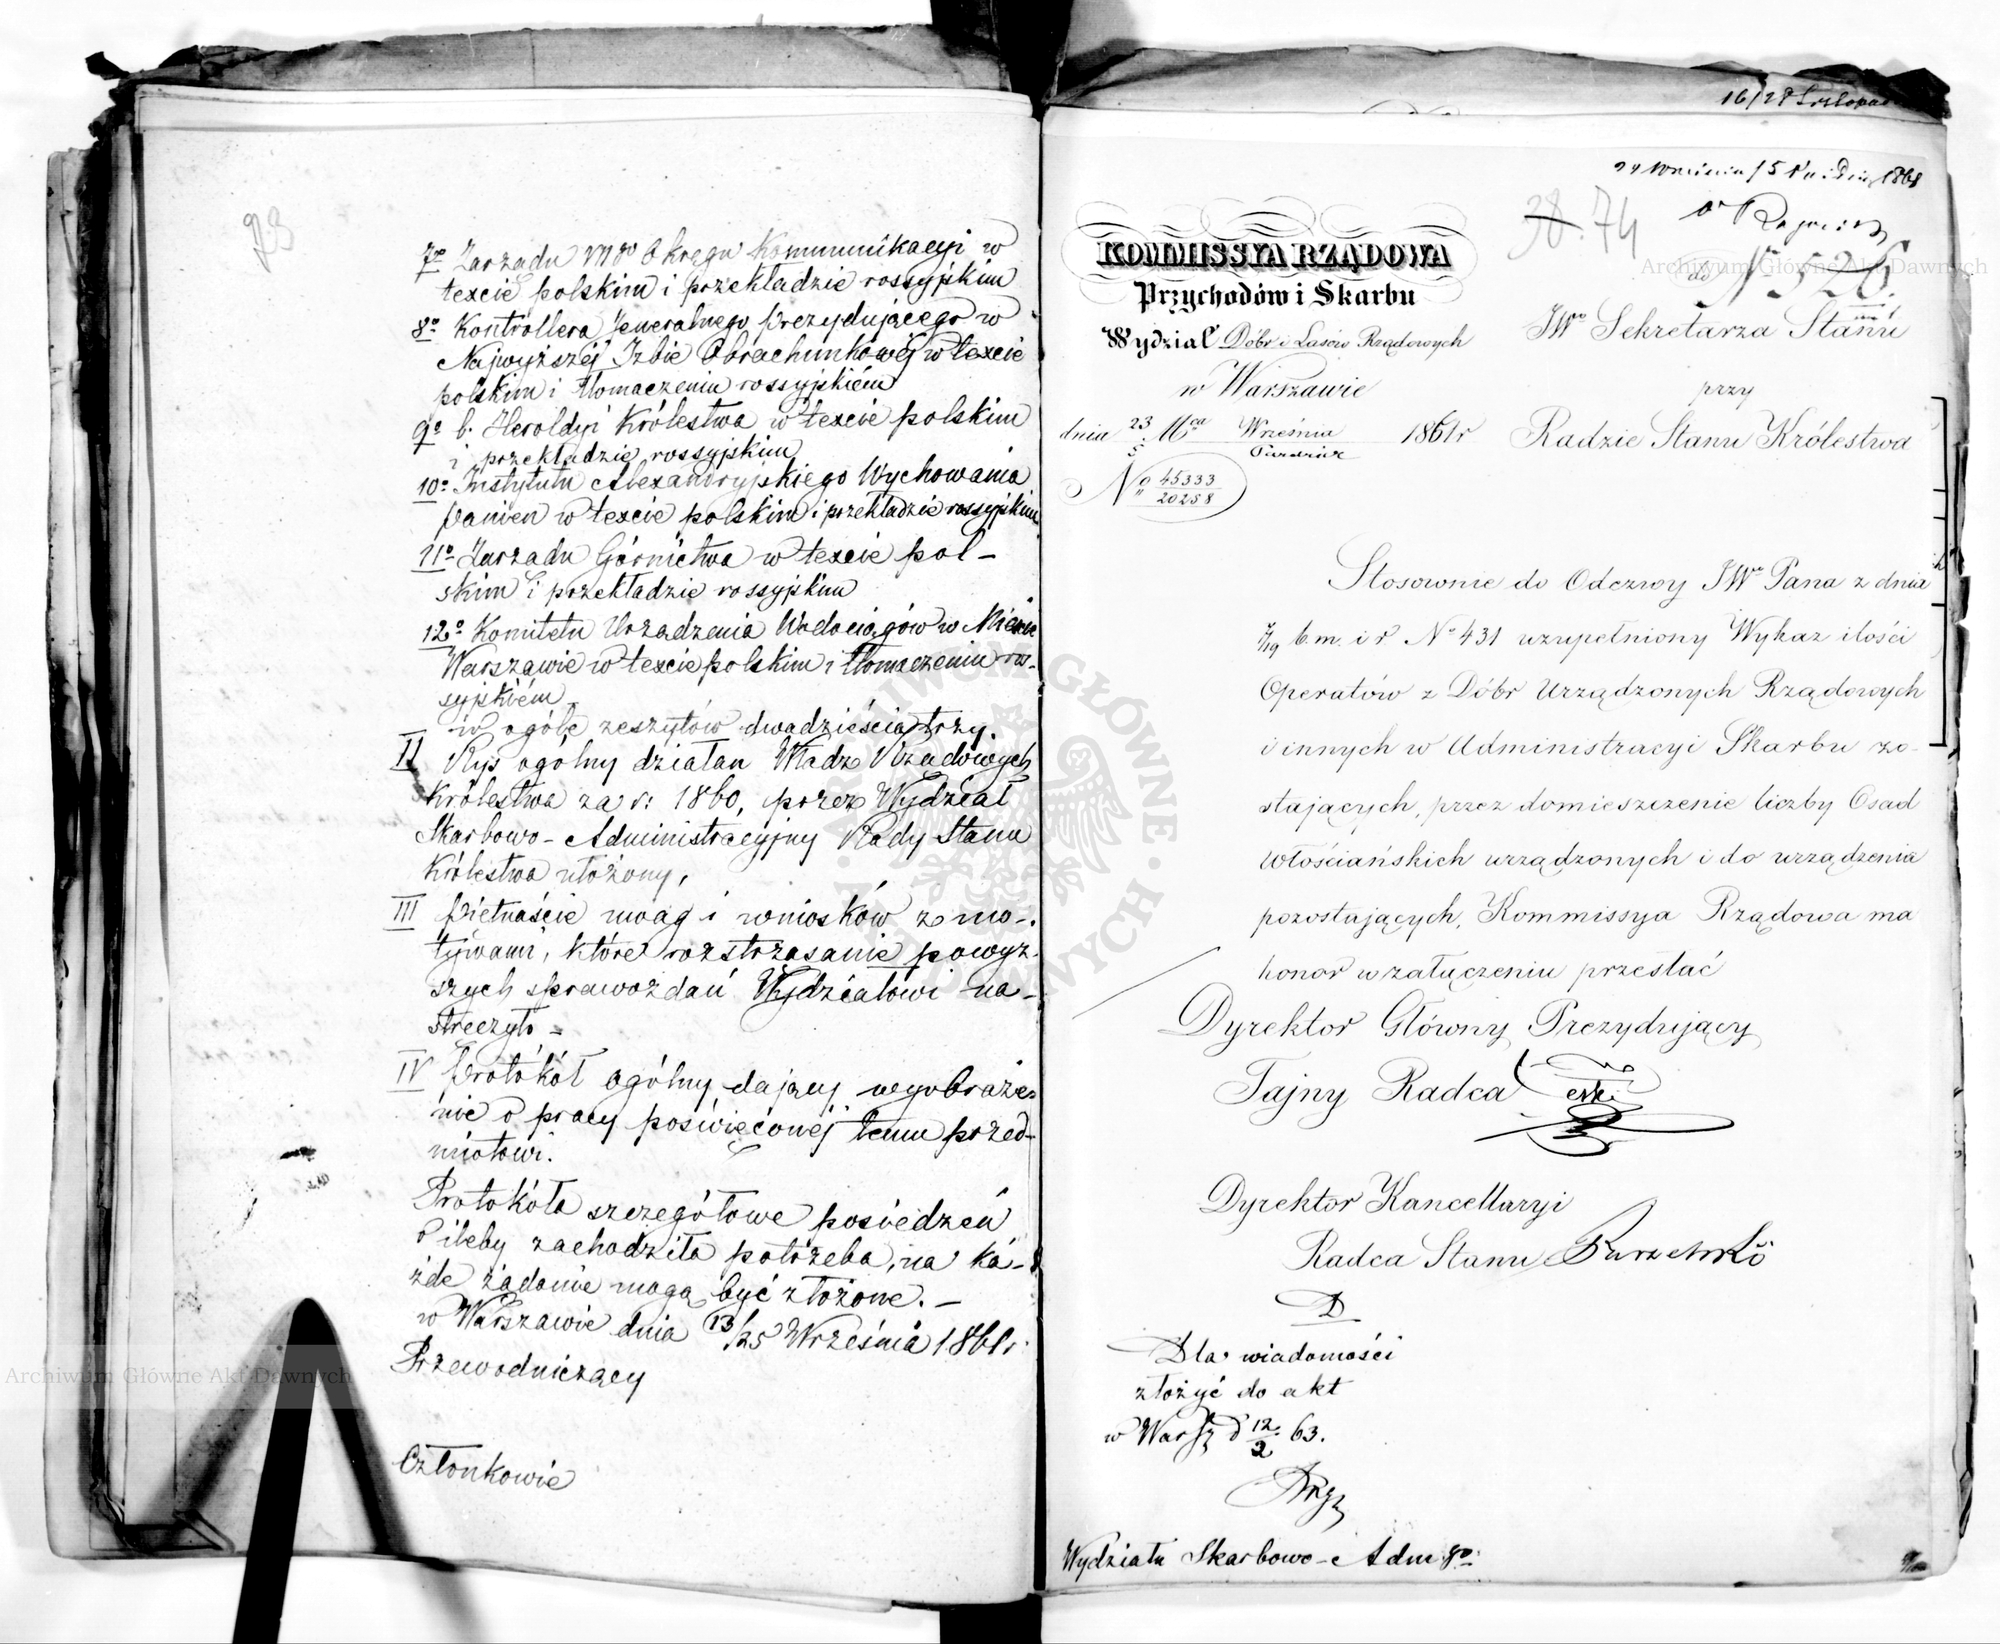 73
7º Zarządu VIIIgo Okręgu Kommunikacyi w
texcie polskim i przekładzie rossyjskim
8º Kontrollera Jeneralnego prezydującego w
Najwyższej Izbie Obrachunkowej w texcie
polskim i tłomaczeniu rossyjskiém
9º b. Heroldyi Królestwa w texcie polskim
i przekładzie rossyjskim
10º Instytutu Alexandryjskiego Wychowania
Panien w texcie polskim i przekładzie rossyjskim
11º Zarządu Górnictwa w texcie pol-
skim i przekładzie rossyjskim
12º Komitetu Urządzenia Wodociągów w Mieście
Warszawie w texcie polskim i tłomaczeniu ros-
syjskiém
w ogóle zeszytów dwadzieścia trzy.
II Rys ogólny działań Władz Rządowych
Królestwa za r: 1860, przez Wydział
Skarbowo-Administracyjny Rady Stanu
Królestwa ułożony,
III piętnaście uwag i wniosków z mo-
tywami, które roztrząsanie powyż-
szych sprawozdań Wydziałowi na-
stręczyło -
IV Protokół ogólny dający wyobraże-
nie o pracy poświęconéj temu przed-
miotowi.
Protokóła szczegółowe posiedzeń
o ileby zachodziła potrzeba, na ka-
żde żądanie mogą być złożone. -
w Warszawie dnia 13/25 Września 1861 r.
Przewodniczący
Członkowie
16/28 Listopad
24 Września / 5 Paździer 1861
38. 74
do N 526
KOMMISSYA RZĄDOWA
Przychodów i Skarbu
Wydział Dóbr i Lasów Rządowych
w Warszawie
dnia 23/5 Mca Września/Paździer 1861 r
No 45333/20258
JWo Sekretarza Stanu
przy
Radzie Stanu Królestwa
Stosownie do Odezwy JWo Pana z dnia
7/19 b.m. i r No 431 uzupełniony Wykaz ilości
Operatów z Dóbr Urządzonych Rządowych
i innych w Administracyi Skarbu zo-
stających, przez domieszczenie liczby Osad
Włościańskich urządzonych i do urządzenia
pozostających, Kommissya Rządowa ma
honor w załączeniu przesłać
Dyrektor Główny Prezydujący
Tajny Radca
Dyrektor Kancellaryi
Radca Stanu
D
Dla wiadomości
złożyć do akt
w Warsz d 12/2 63.
Wydziału Skarbowo-Adm go:
Archiwum Główne Akt Dawnych
Archiwum Główne Akt Dawnych
ARCHIWUM GŁÓWNE AKT DAWNYCH